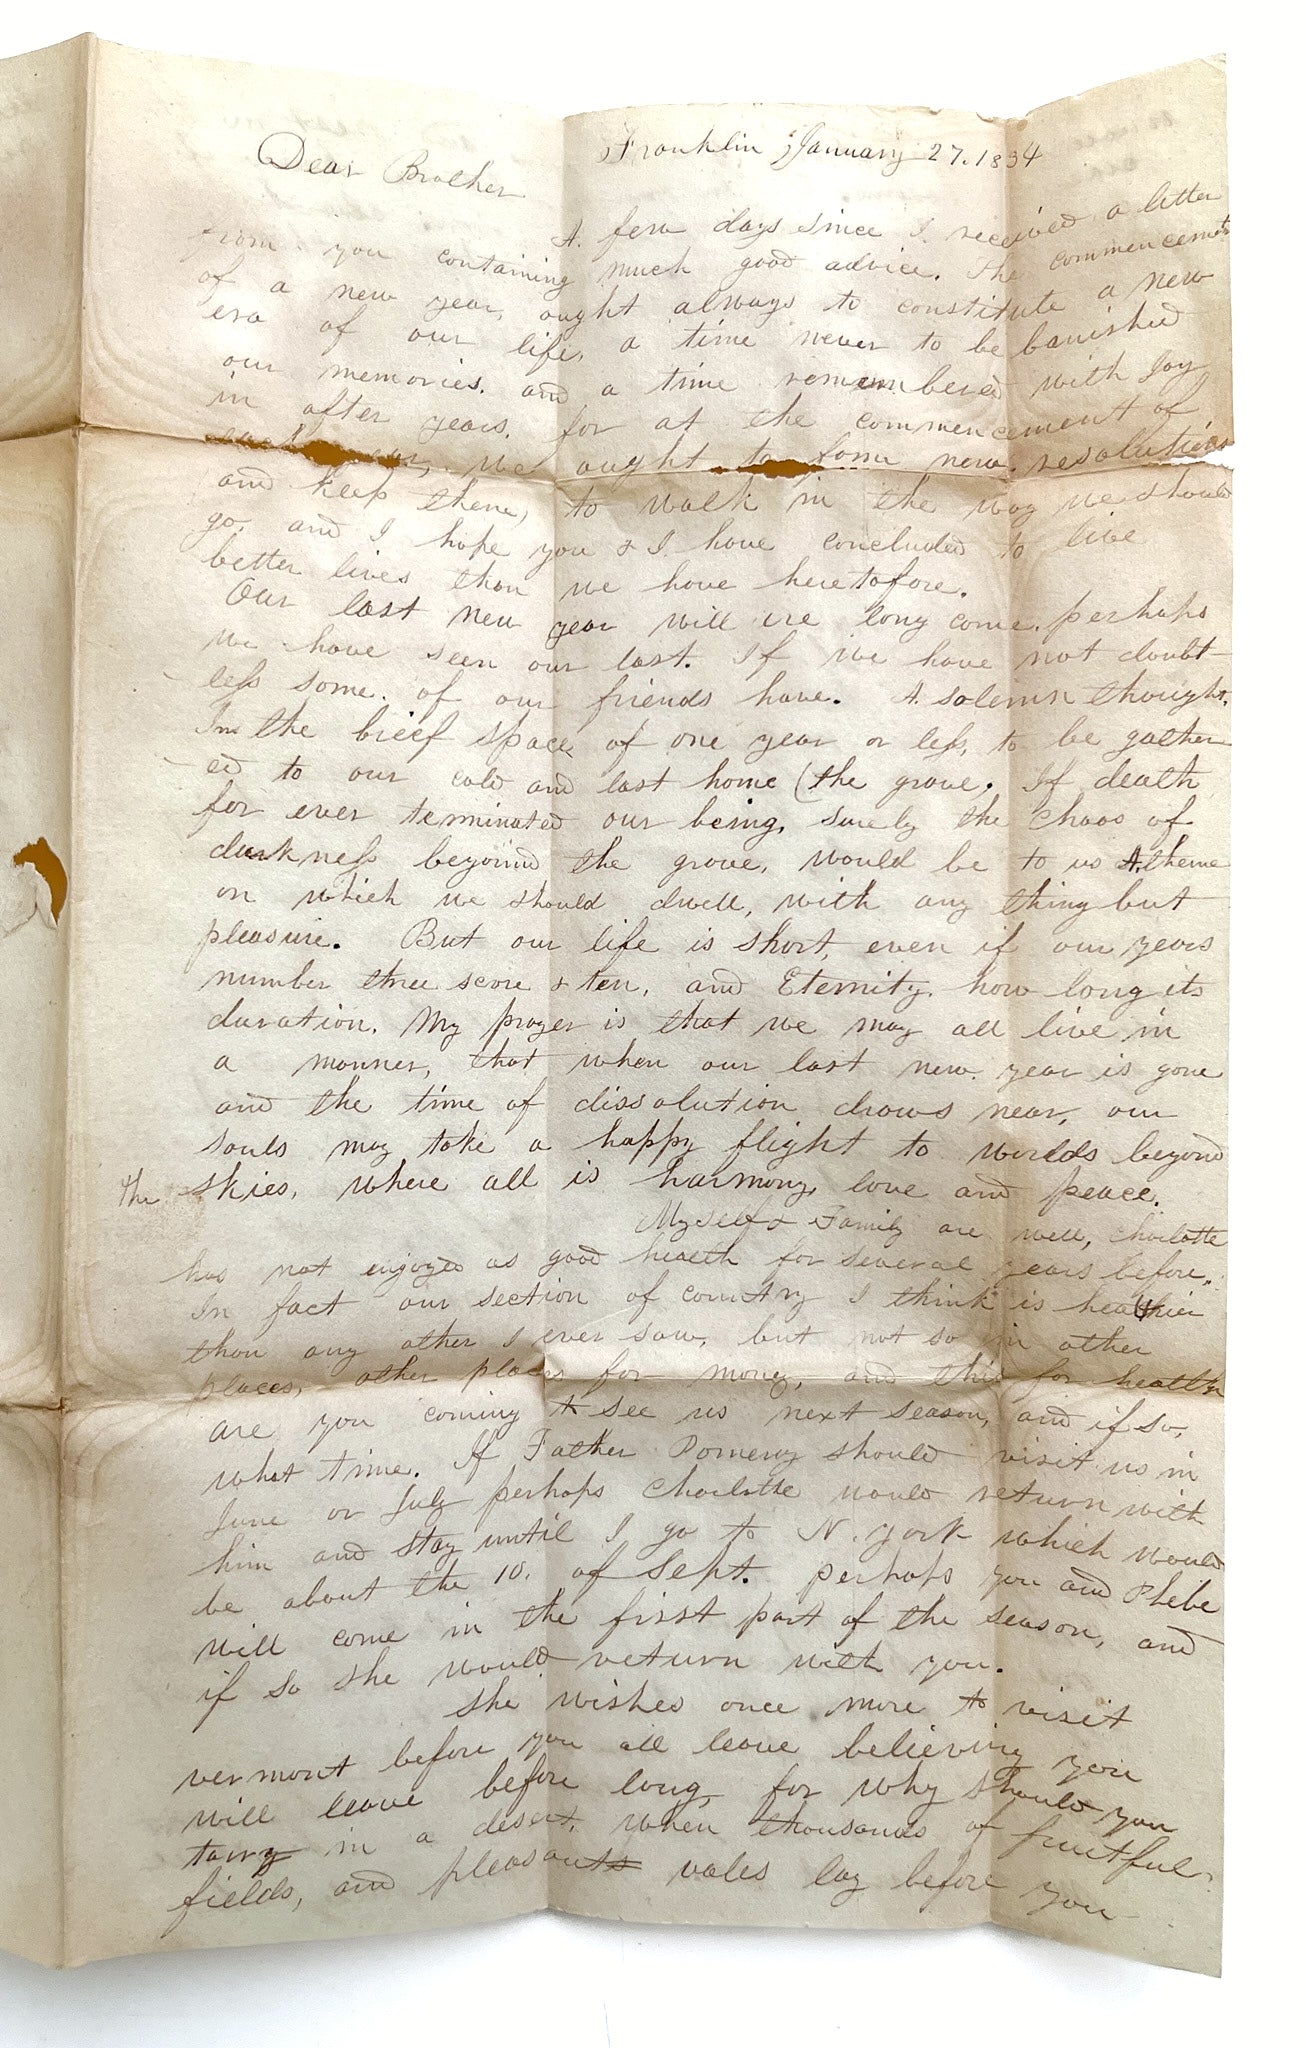 Franklin January 27. 1834
Dear Brother
A. few days since I. received a letter
from you containing much good advice. The commencement
of a new year, ought always to constitute a new
era of our life, a time never to be banished
our memories. and a time remembered with Joy
in after years. for at the commencement of
each year, we ought to form new resolutions
and keep them, to walk in the way we should
go. and I hope you & I. have concluded to live
better lives than we have heretofore.
Our last new year will ere long come. perhaps
we have seen our last. If we have not doubt-
less some. of our friends have. A. solemn thought.
In the brief space of one year or less, to be gather
ed to our cold and last home (the grave. If death
for ever terminated our being, surely the Chaos of
darkness beyound the grave, would be to us A. theme
on which we should dwell, with any thing but
pleasure. But our life is short, even if our years
number three score & ten, and Eternity. how long its
duration. My prayer is that we may all live in
a manner, that when our last new year is gone
and the time of dissolution draws near, our
souls may take a happy flight to worlds beyond
the skies, where all is harmony, love and peace.
Myself & Family are well, Charlotte
has not enjoyed as good health for several years before.
In fact our section of country I think is healthier
than any other I ever saw, but not so in other
places, other places for money, and this for health
are you coming to see us next season, and if so,
what time. If Father Pomeroy should visit us in
June or July perhaps Charlotte would return with
him and stay until I go to N. York which would
be about the 10. of Sept. perhaps you and Phebe
will come in the first part of the season, and
if so she would return with you.
she wishes once more to visit
vermont before you all leave believing you
will leave before long, for why should you
tarry in a desert, when thousands of fruitful
fields, and pleasants vales lay before you